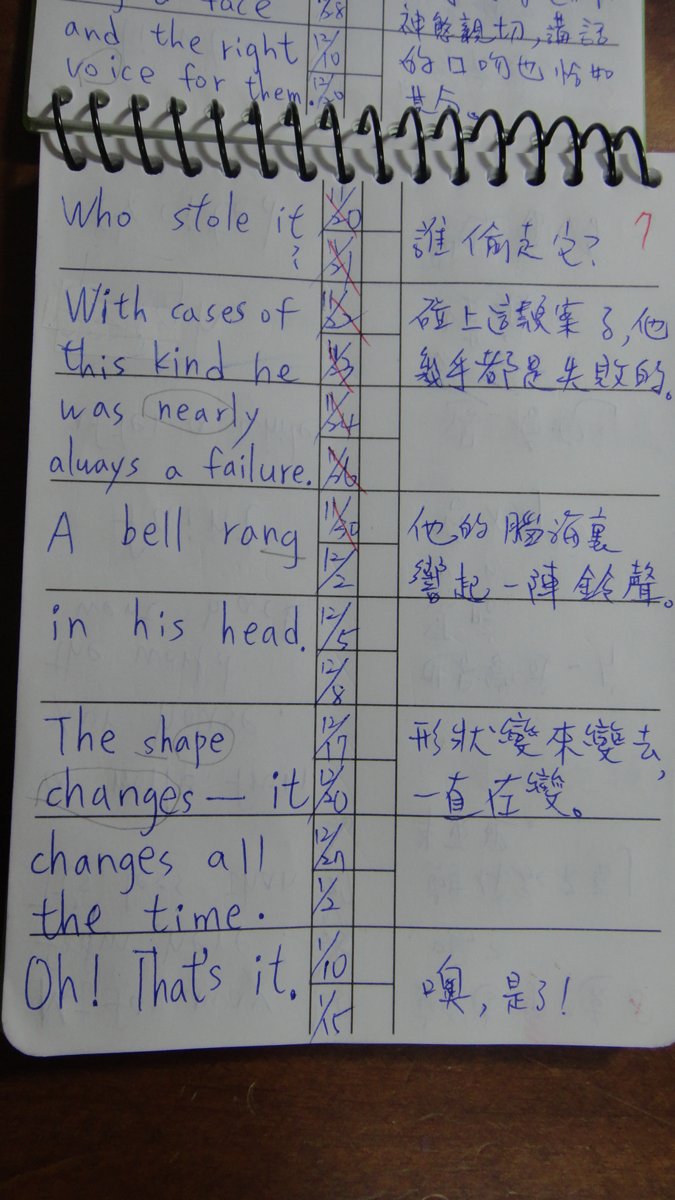 a face
and the right
voice for them.
12/10
12/20
神態親切,講話
的口吻也恰如
其分。
Who stole it
?
11/20
11/21
誰偷走它?
7
With cases of
this kind he
was nearly
always a failure.
11/22
11/23
11/24
11/26
碰上這類案子,他
幾乎都是失敗的。
A bell rang
in his head.
11/30
12/2
12/5
12/8
他的腦海裏
響起一陣鈴聲。
The shape
changes — it
changes all
the time.
12/17
12/20
12/27
1/2
形狀變來變去,
一直在變。
Oh! That's it.
1/10
1/15
噢,是了!